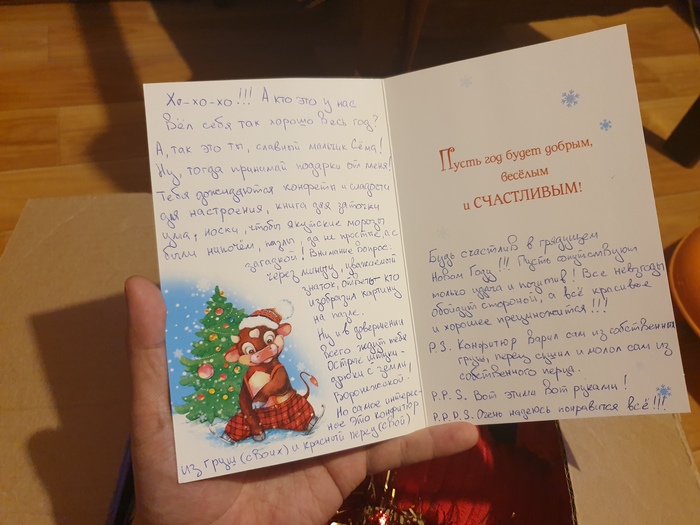 Хо-хо-хо!!! А кто это у нас
Вёл себя так хорошо весь год?
А, так это ты, славный мальчик Сёма!
Ну, тогда принимай подарки от меня!
Тебя дожидаются конфеты и сладости
для настроения, книга для заточки
ума, носки, чтобы якутские морозы
были нипочём, пазлы да не простые, а с
загадкой! Внимание вопрос:
через минуту, уважаемый
знаток, ответьте кто
изобразил картину
на пазле.
Ну и в довершении
всего ждут тебя
острые штуки-
дрюки с земли
Воронежской.
Но самое интерес-
ное это конфитюр
из груш (своих) и красный перец (свой)
Пусть год будет добрым,
весёлым
и СЧАСТЛИВЫМ!
Будь счастлив в грядущем
Новом Году!!! Пусть сопутствуют
только удача и позитив! Все невзгоды
обойдут стороной, а всё красивое
и хорошее преумножится!!!
P.S. Конфитюр варил сам из собственных
груш, перец сушил и молол сам из
собственного перца.
P.P.S. Вот этими вот руками!
P.P.P.S. Очень надеюсь понравится всё!!!